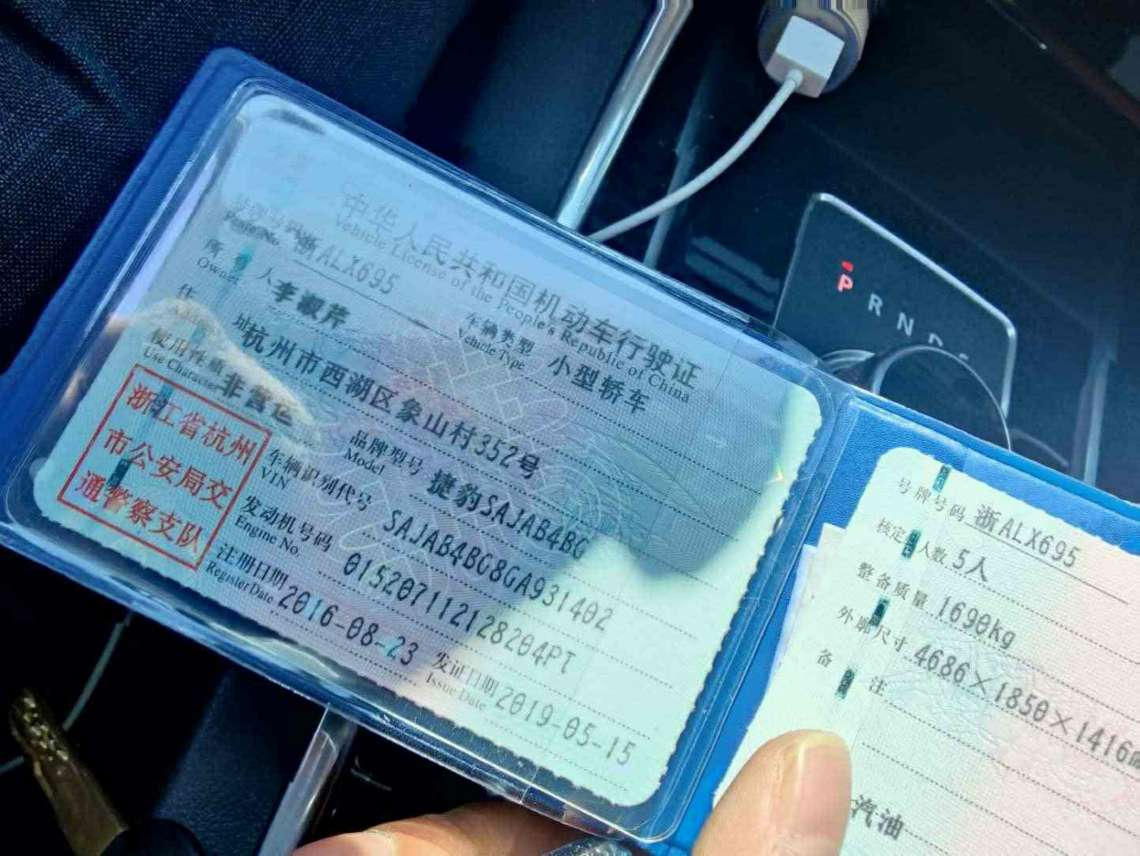 中华人民共和国机动车行驶证
Vehicle License of the People's Republic of China
号牌号码 浙ALX695
Plate No.
车辆类型 小型轿车
Vehicle Type
所 人 李淑芹
Owner
住 址 杭州市西湖区象山村352号
使用性质 非营运
Use Character
品牌型号 捷豹SAJAB4BG
Model
车辆识别代号 SAJAB4BG8GA931402
VIN
发动机号码 015207112128204PT
Engine No.
注册日期 2016-08-23
Register Date
发证日期 2019-05-15
Issue Date
浙江省杭州
市公安局交
通警察支队
号牌号码 浙ALX695
核定 人数 5人
整备质量 1690kg
外廓尺寸 4686×1850×1416
备 注
汽油
P R N D S